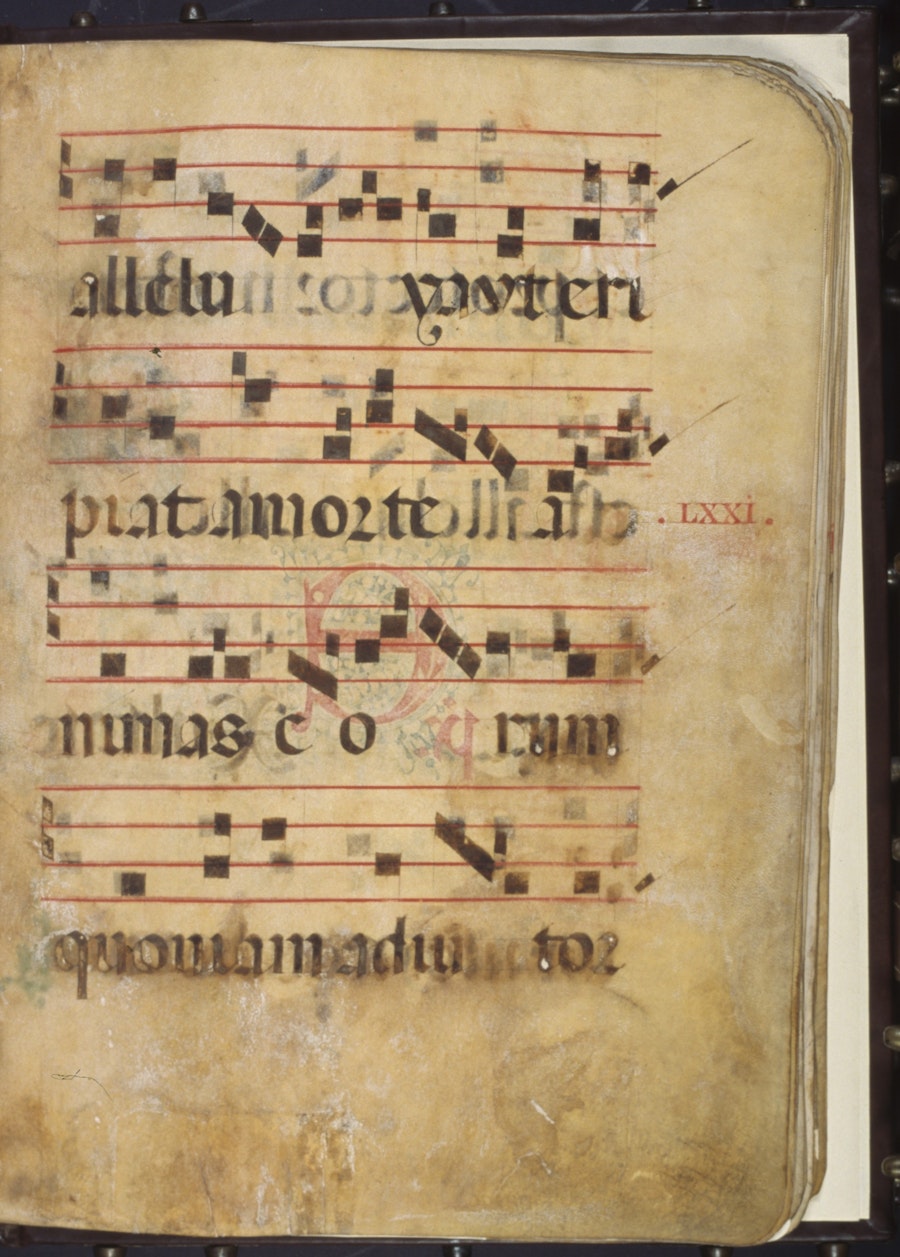 allelu ya v ut eri
piat a morte a
nimas e o rum
quoniam adiu tor
. LXXI .